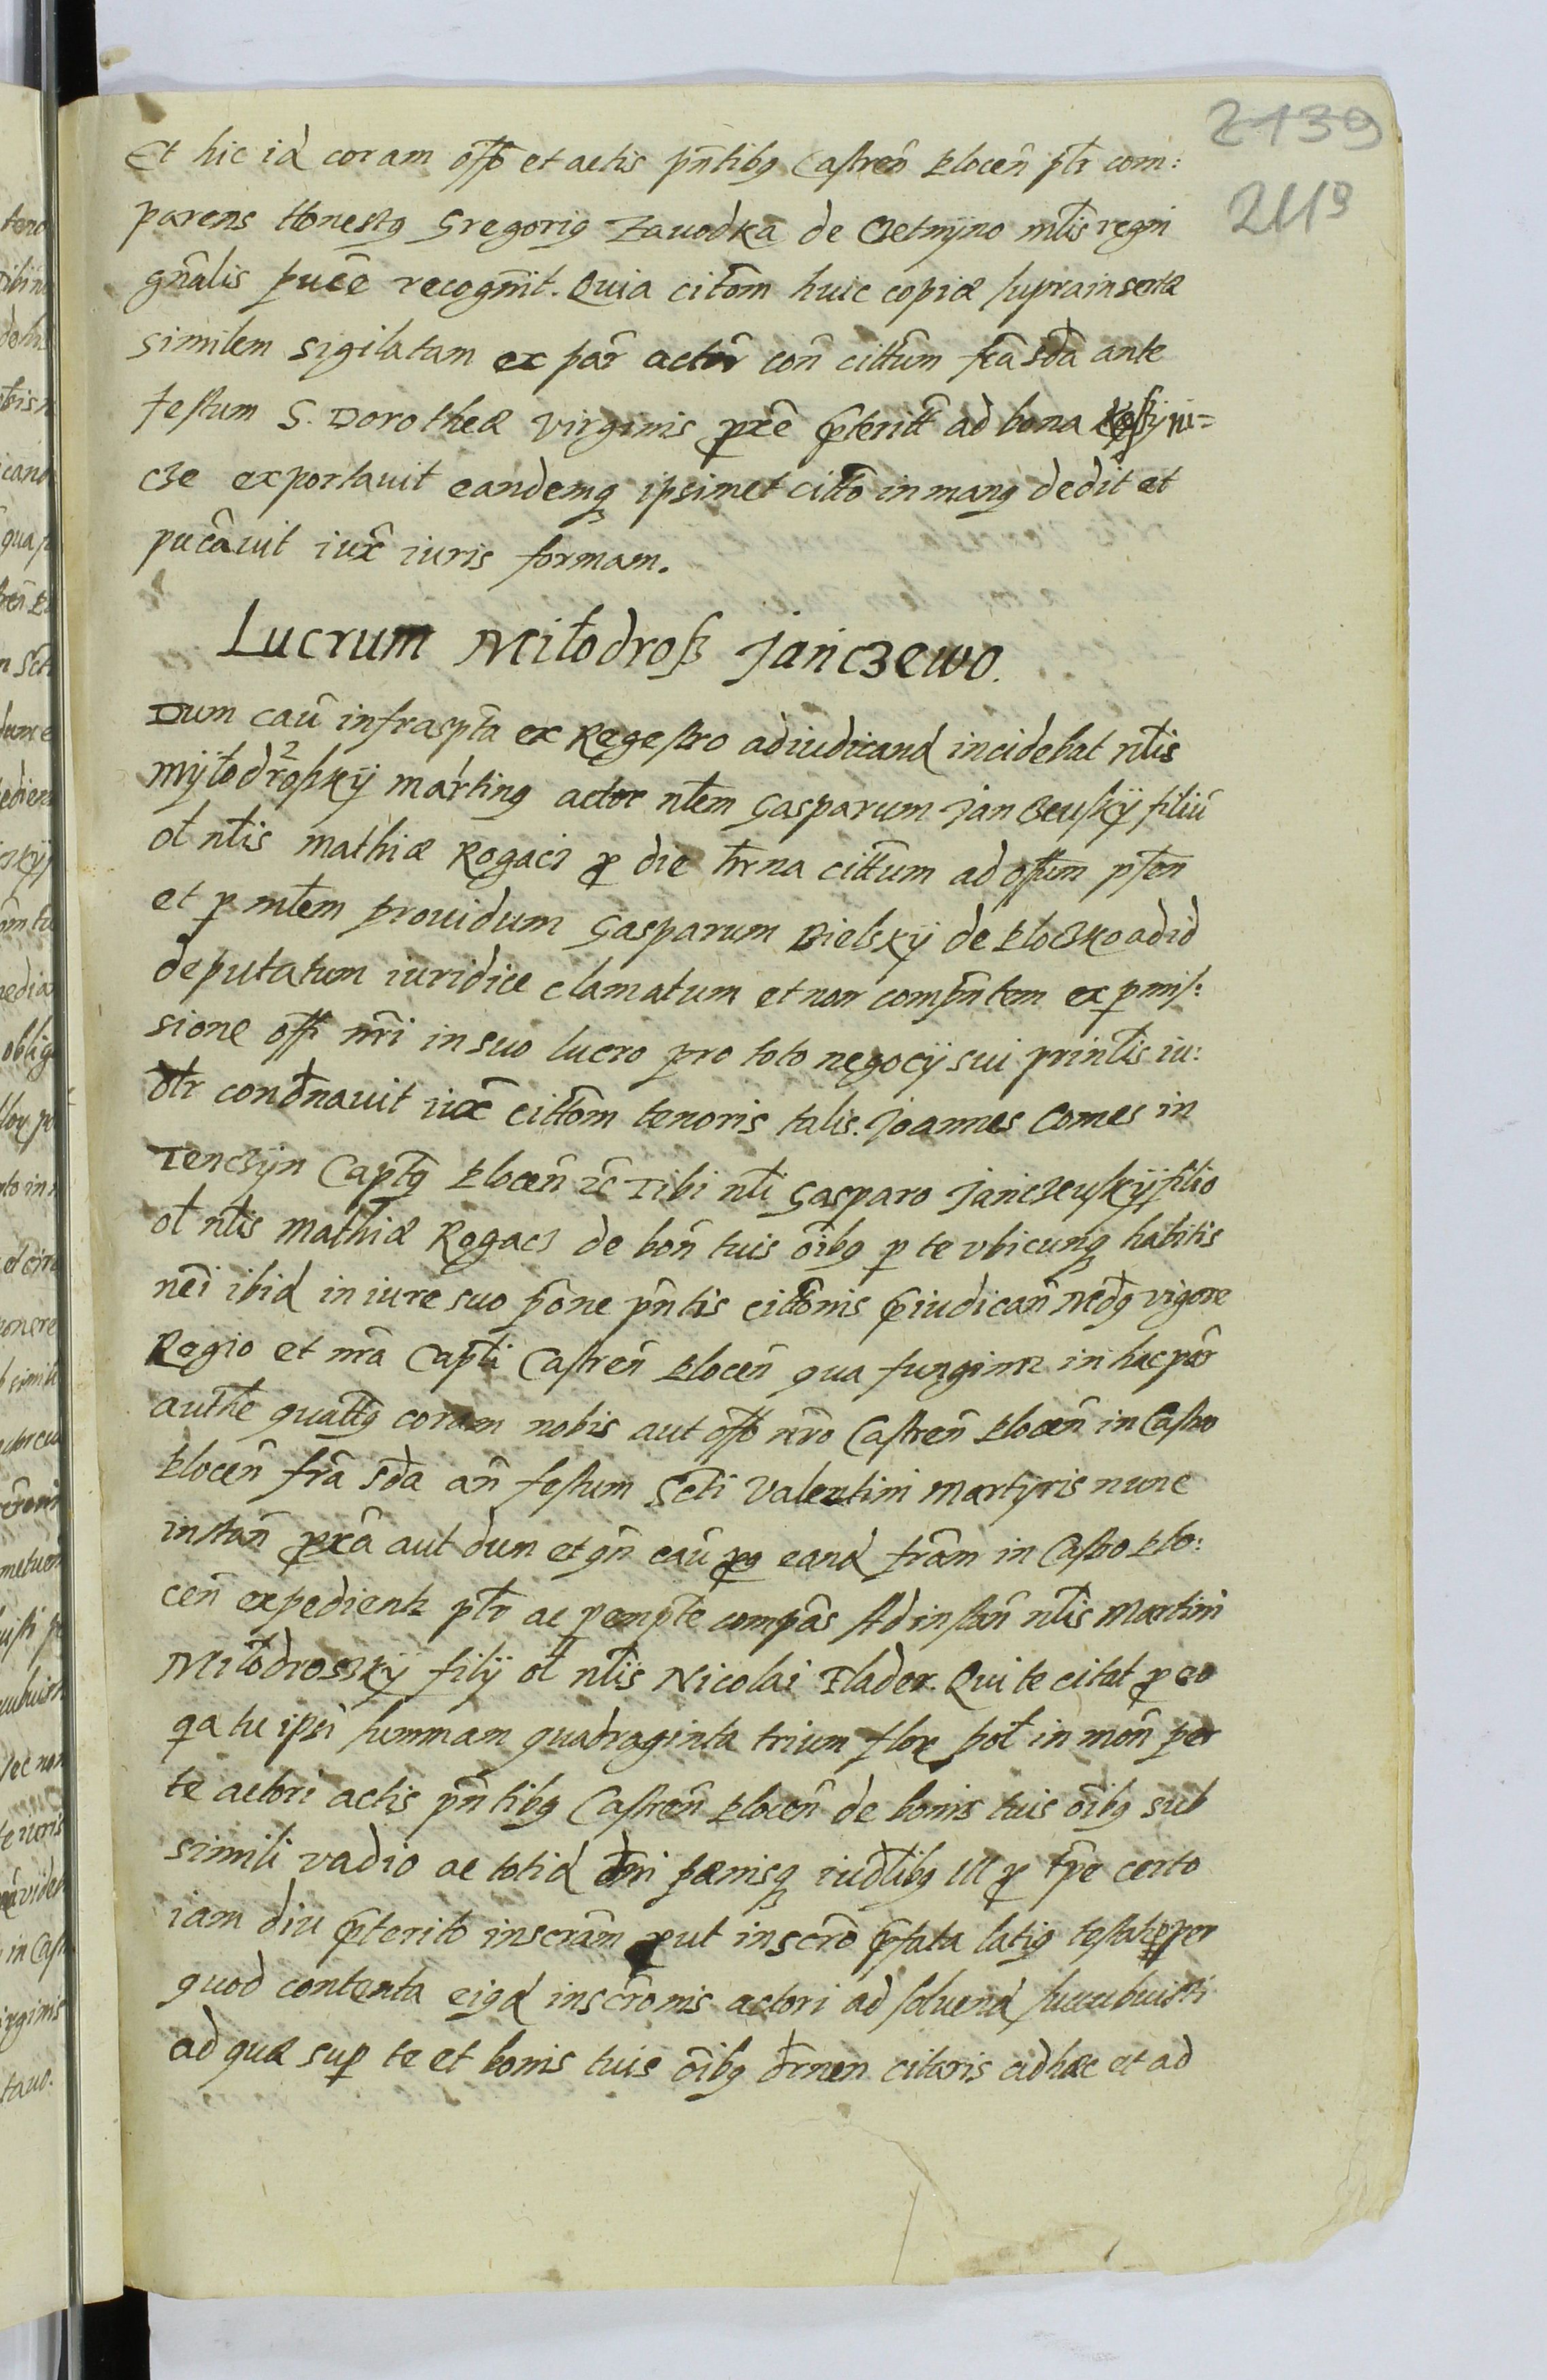 2139
2119
Et hic id coram offo et actis pñtibus Castreñ Ploceñ pltr com:
parens Honestus Gregorius Zauodka de Cetnÿno mltis regni
gñalis puce recognit. Quia citom huic copiæ supra insertæ
similem sigilatam ex par actor con cittum fra sda ante
festum S. Dorotheæ virginis pxe pteritt ad bona
cze exportauit eandemq ipsimet citto in manus dedit et
pucauit iux iuris formam.
Lucrum Miłodroß Jańczewo.
Dum cau infraspta ex Regestro adiudicand incidebat nltis
Mÿłodroskÿ Martinus actor nltem Gasparum Janczeuskÿ filiu
ol nltis Mathiæ Rogacz p die hrna cittum ad offum pten
et p mltem prouidum Gasparum Bielskÿ de Ploczko ad id
deputatum iuridice clamatum et non compntem ex pmis:
sione offi nri in suo lucro pro toto negocÿ sui printis iu:
dltr condnauit iux cittom tenoris talis. Joannes Comes in
Tenczÿn Capts Ploceñ &c Tibi nlti Gasparo Janczeuskÿ filio
ol nltis Mathiæ Rogacz de bon tuis oibus p te vbicunq habitis
nei ibid in iure suo pone pntis cittonis piudican Mdus vigore
Regio et nra Capti Castreñ Ploceñ qua fungimr in hac par
authe quatts coram nobis aut offo nro Castreñ Ploceñ in Castro
Ploceñ fra sda an festum Scti Valentini Martyris nunc
instan pxa aut dum et qn cau pus eand fram in Castro Plo:
ceñ expedientr pltr ac pempte compas Ad instan nltis Martini
Miłodroszkÿ filÿ ol nltis Nicolai Flader. Qui te citat p eo
qa tu ipsi summam quadraginta trium flor pol in mon per
te actori actis pntibus Castreñ Ploceñ de bonis tuis oibus sub
simili vadio ac totid dni pænisq iudlibus III p tpe certo
iam diu pterito inscram put inscro pfata latius testatr per
quod contenta eiusd inscronis actori ad soluend succubuisti
ad quæ sup te et bonis tuis oibus drnen citaris ad hæc et ad